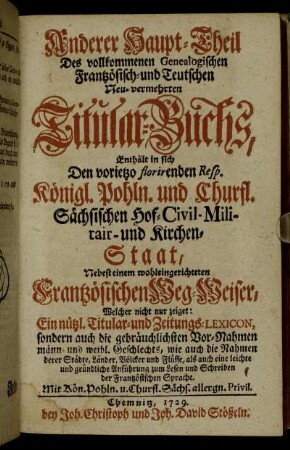 Anderer Haupt-Theil
Des vollkommenen Genealogischen
Frantzösisch- und Teutschen
Neu-vermehrten
Titular-Buchs,
Enthält in sich
Den vorietzo florirenden Resp.
Königl. Pohln. und Churfl.
Sächsischen Hof- Civil- Mili-
tair- und Kirchen-
Staat,
Nebest einem wohleingerichteten
Frantzösischen Weg-Weiser,
Welcher nicht nur zeiget:
Ein nützl. Titular- und Zeitungs-LEXICON,
sondern auch die gebräuchlichsten Vor-Nahmen
männ- und weibl. Geschlechts, wie auch die Nahmen
derer Städte, Länder, Völcker und Flüsse, als auch eine leichte
und gründliche Anführung zum Lesen und Schreiben
der Frantzösischen Sprache.
Mit Kön. Pohln. u. Churfl. Sächs. allergn. Privil.
Chemnitz, 1729.
bey Joh. Christoph und Joh. David Stößeln.